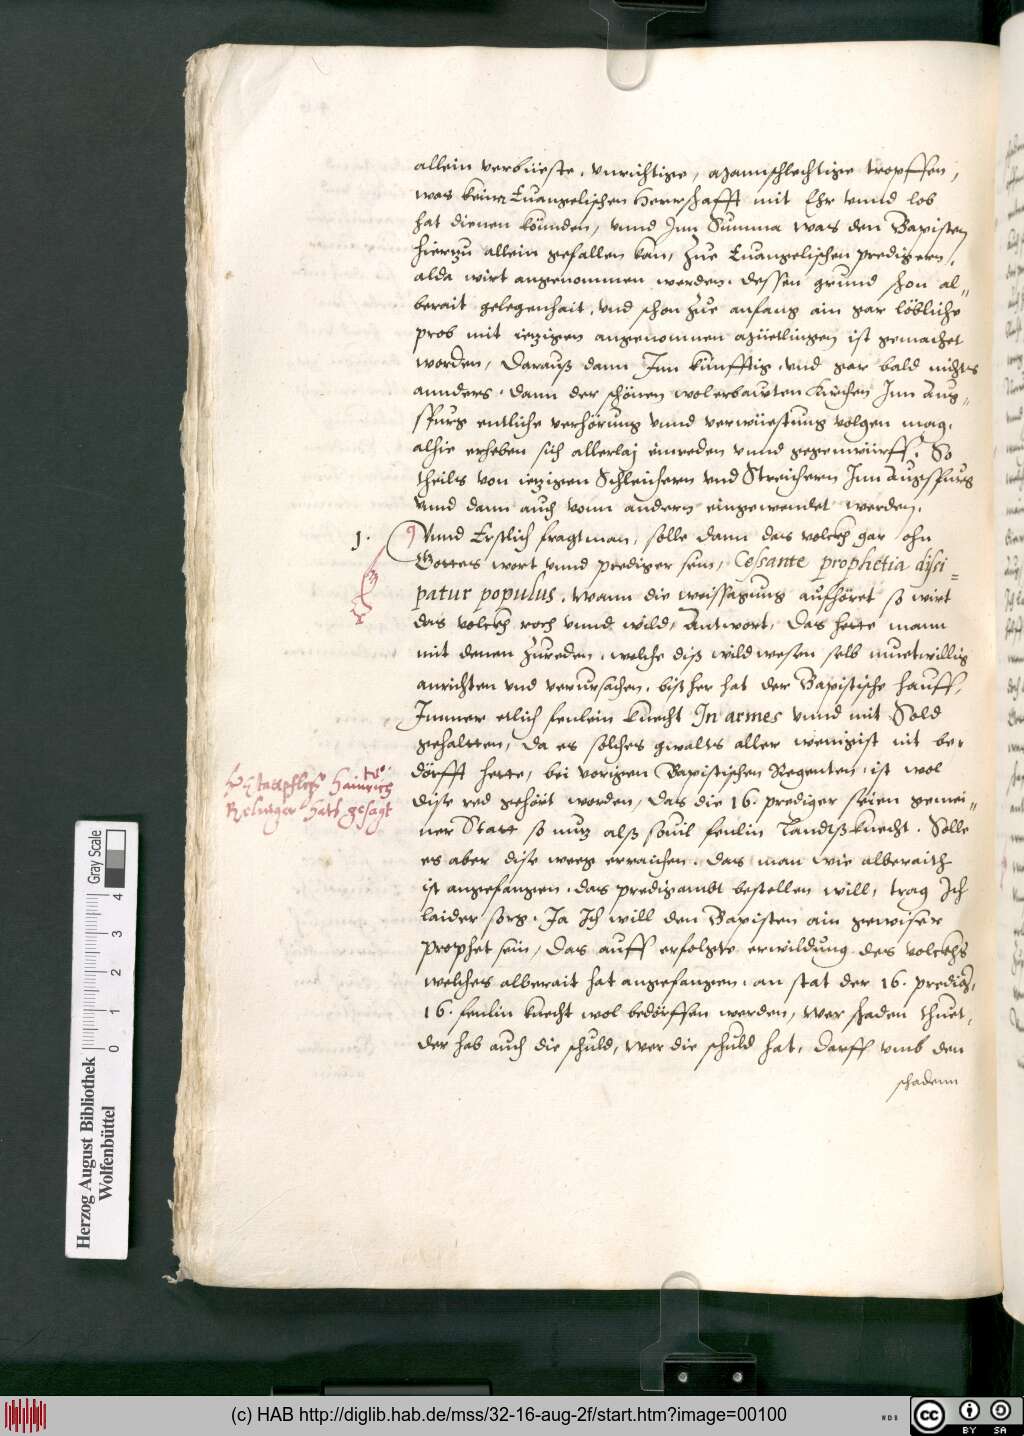 allein verbüeste, vnrichtige, mannschlechtige tropffen,
was keine Euangelischen Herrschafft mit Ehr vnnd lob
hat dienen könnden, vnnd Jnn Summa was den Bapisten
hierzu allein gefallen kan, Zue Euangelischen predigern,
alda wirt angenommen werden. dessen grund schon al-
berait gelegenhait, vnd schon Zue anfang ain gar löbliche
prob mit iezigen angenomnen müetlingen ist gemachet
worden, Darauß dann Jnn künfftig, vnd gar bald nichts
annders, dann der schönen wolerbawten Kirchen Jnn Aug-
spurg entliche verhörung vnnd verwüestung volgen mag.
alhie erheben sich allerlaj einreden vnnd gegenwürff. So
theils von iezigen Schleichern vnd Streichern Jnn Augspurg
vnnd dann auch vonn andern eingewendet werden.
1. Vnnd Erstlich fragt man, solle dann das volckh gar ohn
Gottes wort vnnd prediger sein, Cessante prophetia dissi-
patur populus. Wann die weissagung aufhöret so wirt
das volckh roch vnnd wild, Antwort, Das hette mann
mit denen Zureden, welche diß wild wesen selb muetwillig
anrichten vnd verursachen, bißher hat der Bapistische hauff,
Jmmer etlich fenlein knecht In armes vnnd mit Sold
gehaltten, da es solches gwalts aller wenigist nit be-
dörfft hette, bei vorigen Bapistischen Regenten, ist wol
Hr Stattpfleger Hainrich
Rehlinger hath gesagt
dise red gehört worden, Das die 16. prediger seien gemei-
ner Statt so nuz alß souil fenlin Landtßknecht. Solle
es aber dise weeg erraichen, das man wie alberaith
ist angefangen, das predigambt bestellen will, trag Jch
laider sorg. Ja Jch will den Bapisten ain gewiser
prophet sein, Das auff erfolgte erwildung des volckhs
welches alberait hat angefangen, an stat der 16. predig,
16. fenlin knecht wol bedörffen werden, Wer schaden thuet,
der hab auch die schuld, Wer die schuld hat, darff vmb den
schadenn
Herzog August Bibliothek
Wolfenbüttel
0 1 2 3 4
Gray Scale
(c) HAB http://diglib.hab.de/mss/32-16-aug-2f/start.htm?image=00100
WDB
cc BY SA